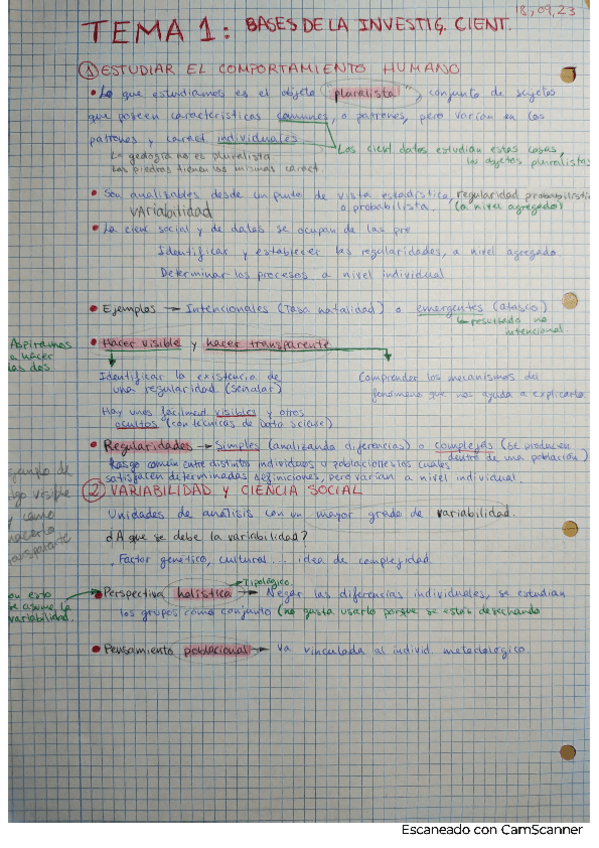 18, 09, 23
TEMA 1: BASES DE LA INVESTIG. CIENT.
① ESTUDIAR EL COMPORTAMIENTO HUMANO
• Lo que estudiamos es el objeto "pluralista", conjunto de sujetos
que poseen características comunes, o patrones, pero varían en los
patrones y caract. individuales
Los cient. datos estudian estas cosas,
La geología no es pluralista
los objetos pluralistas
Las piedras tienen las mismas caract.
• Son analizables desde un punto de vista estadístico, regularidad probabilista
variabilidad
o probabilista. (a nivel agregado)
• La cienc social y de datos se ocupan de las pre
Identificar y establecer las regularidades, a nivel agregado
Determinar los procesos a nivel individual
• Ejemplos → Intencionales (Tasa natalidad) o emergentes (atasco)
↳ resultado no
intencional
Aspiramos
a hacer
las dos
• Hacer visible y hacer transparente
Identificar la existencia de
una regularidad (señalar)
Comprender los mecanismos del
fenómeno que nos ayuda a explicarlo
Hay unos fácilment. visibles y otros
ocultos (con técnicas de Data Science)
• Regularidades → Simples (analizando diferencias) o complejas (se producen
dentro de una población)
Rasgo común entre distintos individuos o poblaciones los cuales
satisfacen determinadas definiciones, pero varían a nivel individual.
ejemplo de
algo visible
y como
hacerlo
transparente
② VARIABILIDAD y CIENCIA SOCIAL
Unidades de análisis con un mayor grado de variabilidad.
¿A que se debe la variabilidad?
. Factor genético, cultural... idea de complejidad.
Tipológico.
con esto
se asume la
variabilidad.
• Perspectiva holística → Negar las diferencias individuales, se estudian
los grupos como conjunto (no gusta usarlo porque se estás desechando
• Pensamiento poblacional → va vinculada al individ. metodológico.
Escaneado con CamScanner